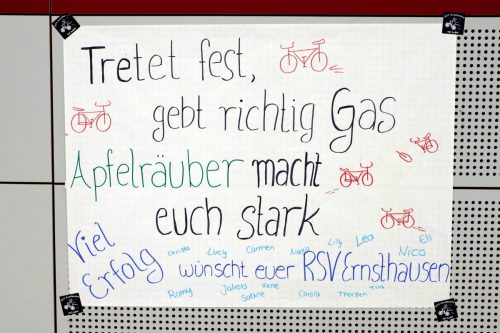 Tretet fest,
gebt richtig Gas
Apfelräuber macht
euch stark
Viel
Erfolg
Christa Lucy Carmen Nadja Lily Lea Eli
Nico
wünscht euer RSV Ernsthausen
Romy Jakob René Carola Thorsten Tina
Sabine